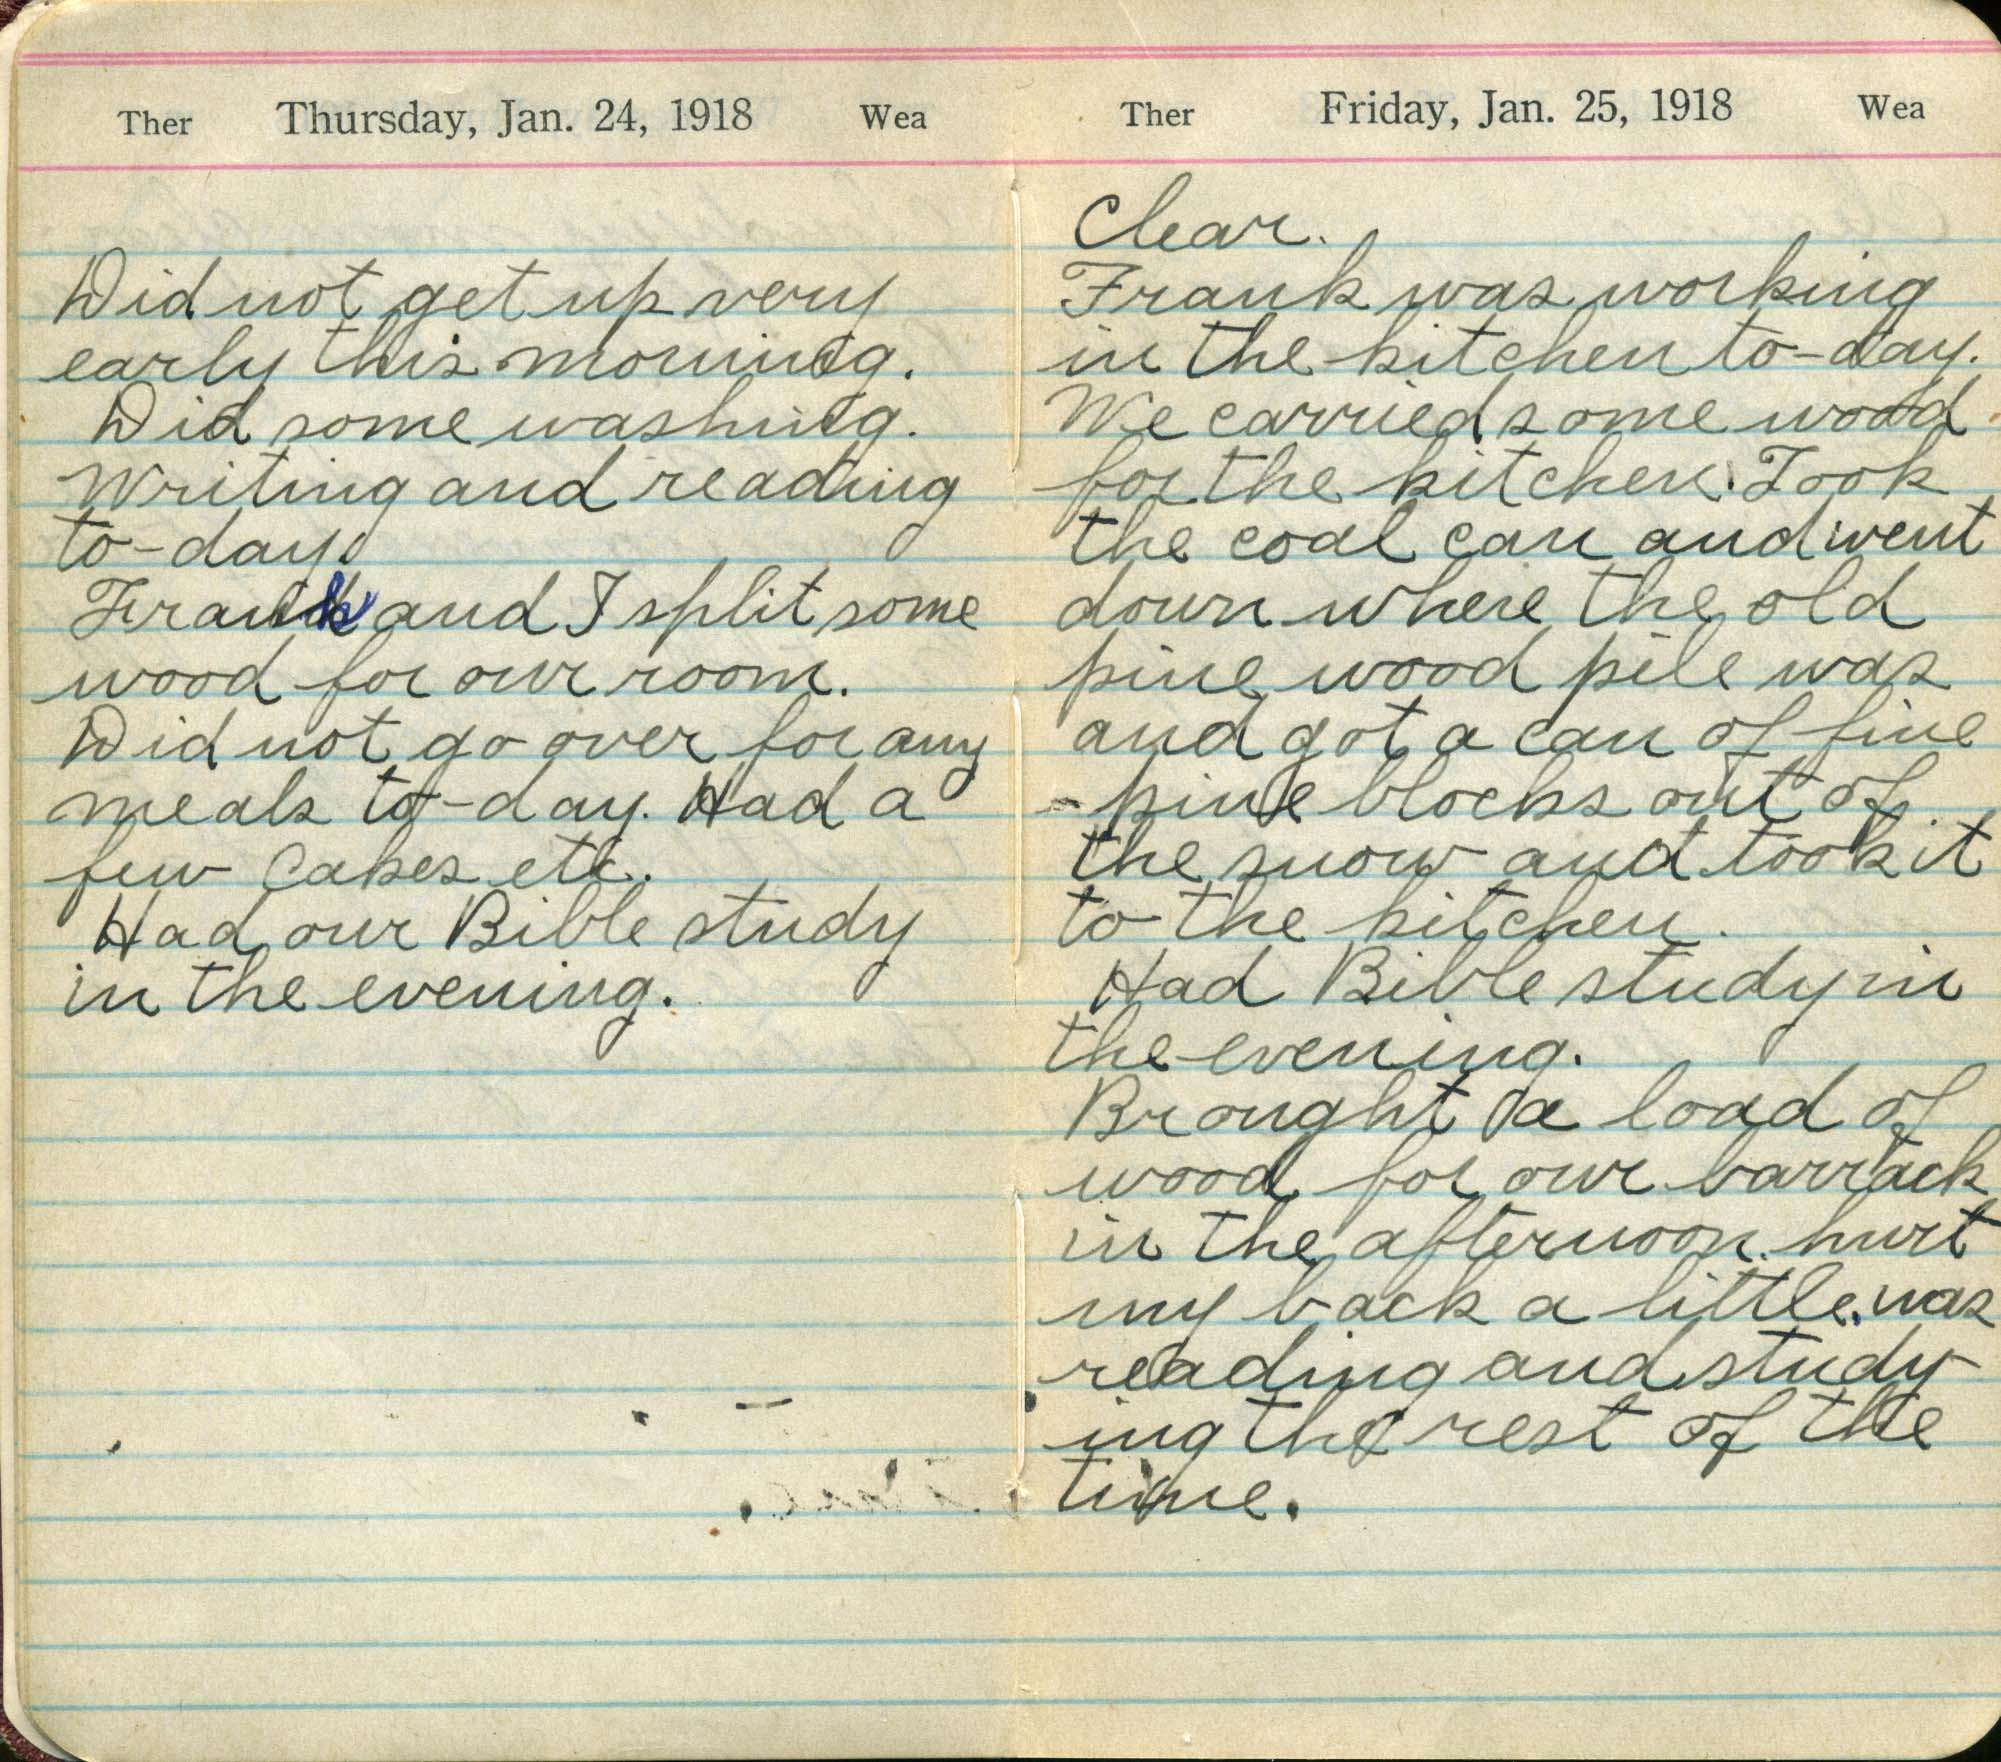 Ther Thursday, Jan. 24, 1918 Wea
Did not get up very
early this morning.
Did some washing.
Writing and reading
to-day.
Frank and I split some
wood for our room.
Did not go over for any
meals to-day. Had a
few cakes etc.
Had our Bible study
in the evening.
Ther Friday, Jan. 25, 1918 Wea
Clear.
Frank was working
in the kitchen to-day.
We carried some wood
for the kitchen. Took
the coal can and went
down where the old
pine wood pile was
and got a can of fine
pine blocks out of
the snow and took it
to the kitchen.
Had Bible study in
the evening.
Brought a load of
wood for our barrack
in the afternoon. hurt
my back a little. was
reading and study-
ing the rest of the
time.